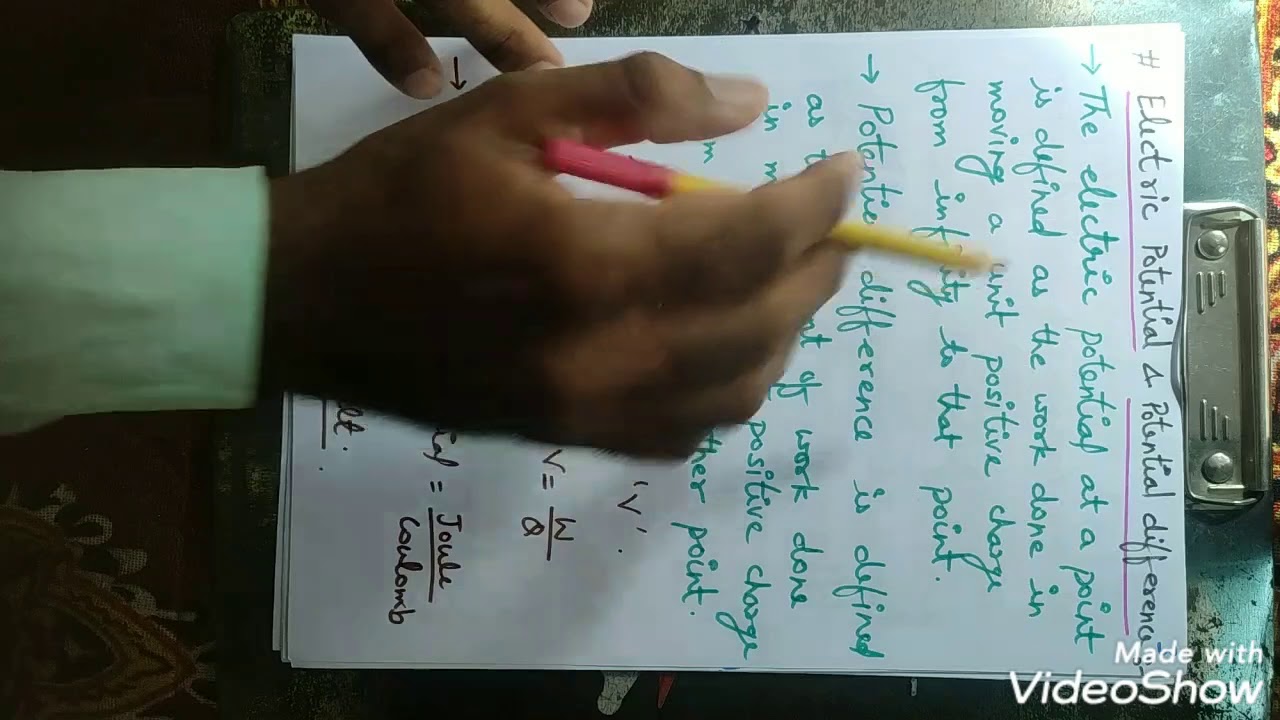 # Electric Potential & Potential difference:-
→ The electric potential at a point
is defined as the work done in
moving a unit positive charge
from infinity to that point.
→ Potential difference is defined
as of work done
in positive charge
point.
'V'.
V = W/Q
→ = Joule/Coulomb
Made with
VideoShow